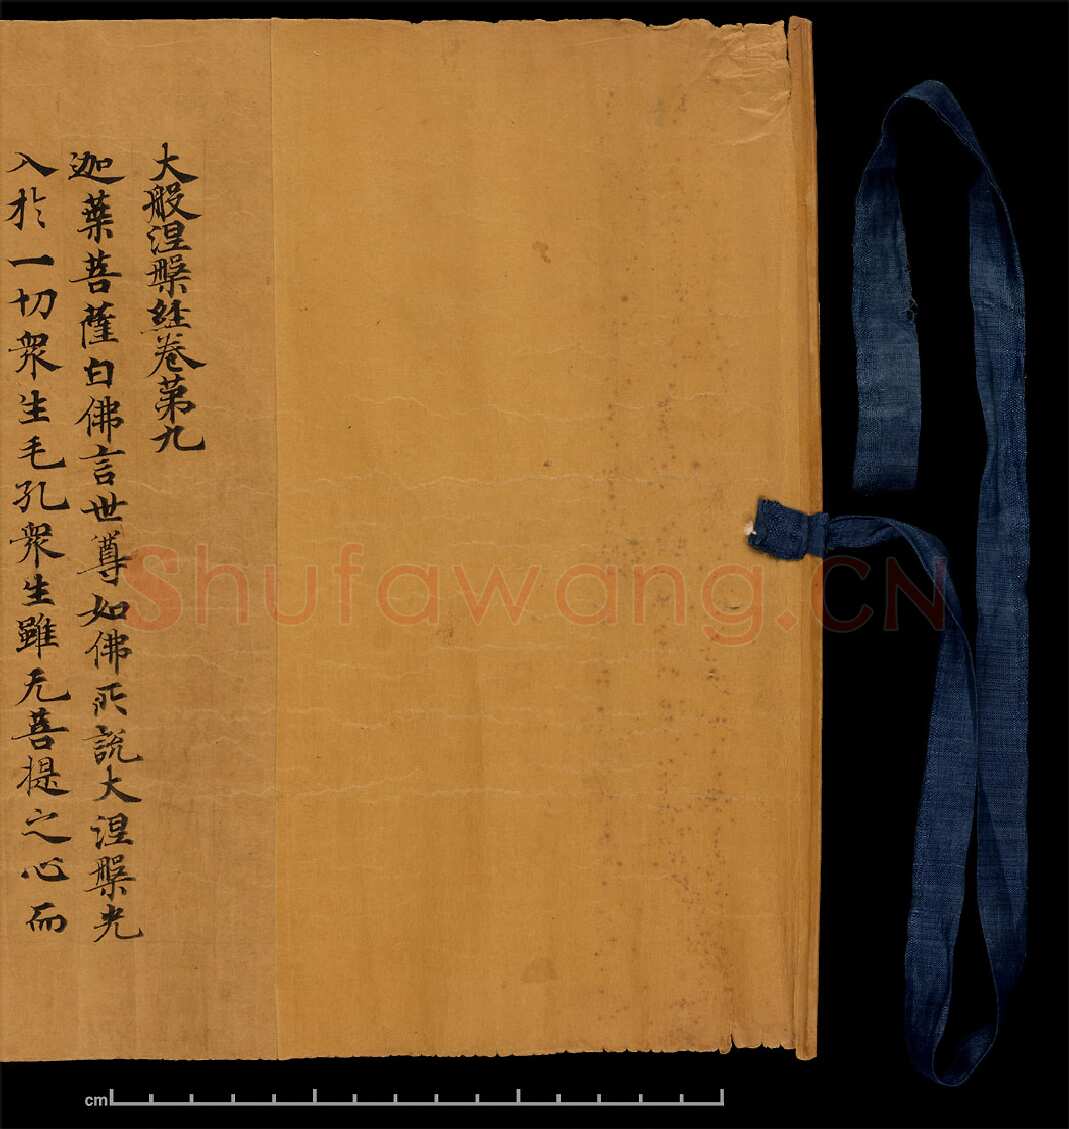 大般涅槃經卷第九
迦葉菩薩白佛言世尊如佛所說大涅槃光
入於一切衆生毛孔衆生雖无菩提之心而
Shufawang.CN
cm